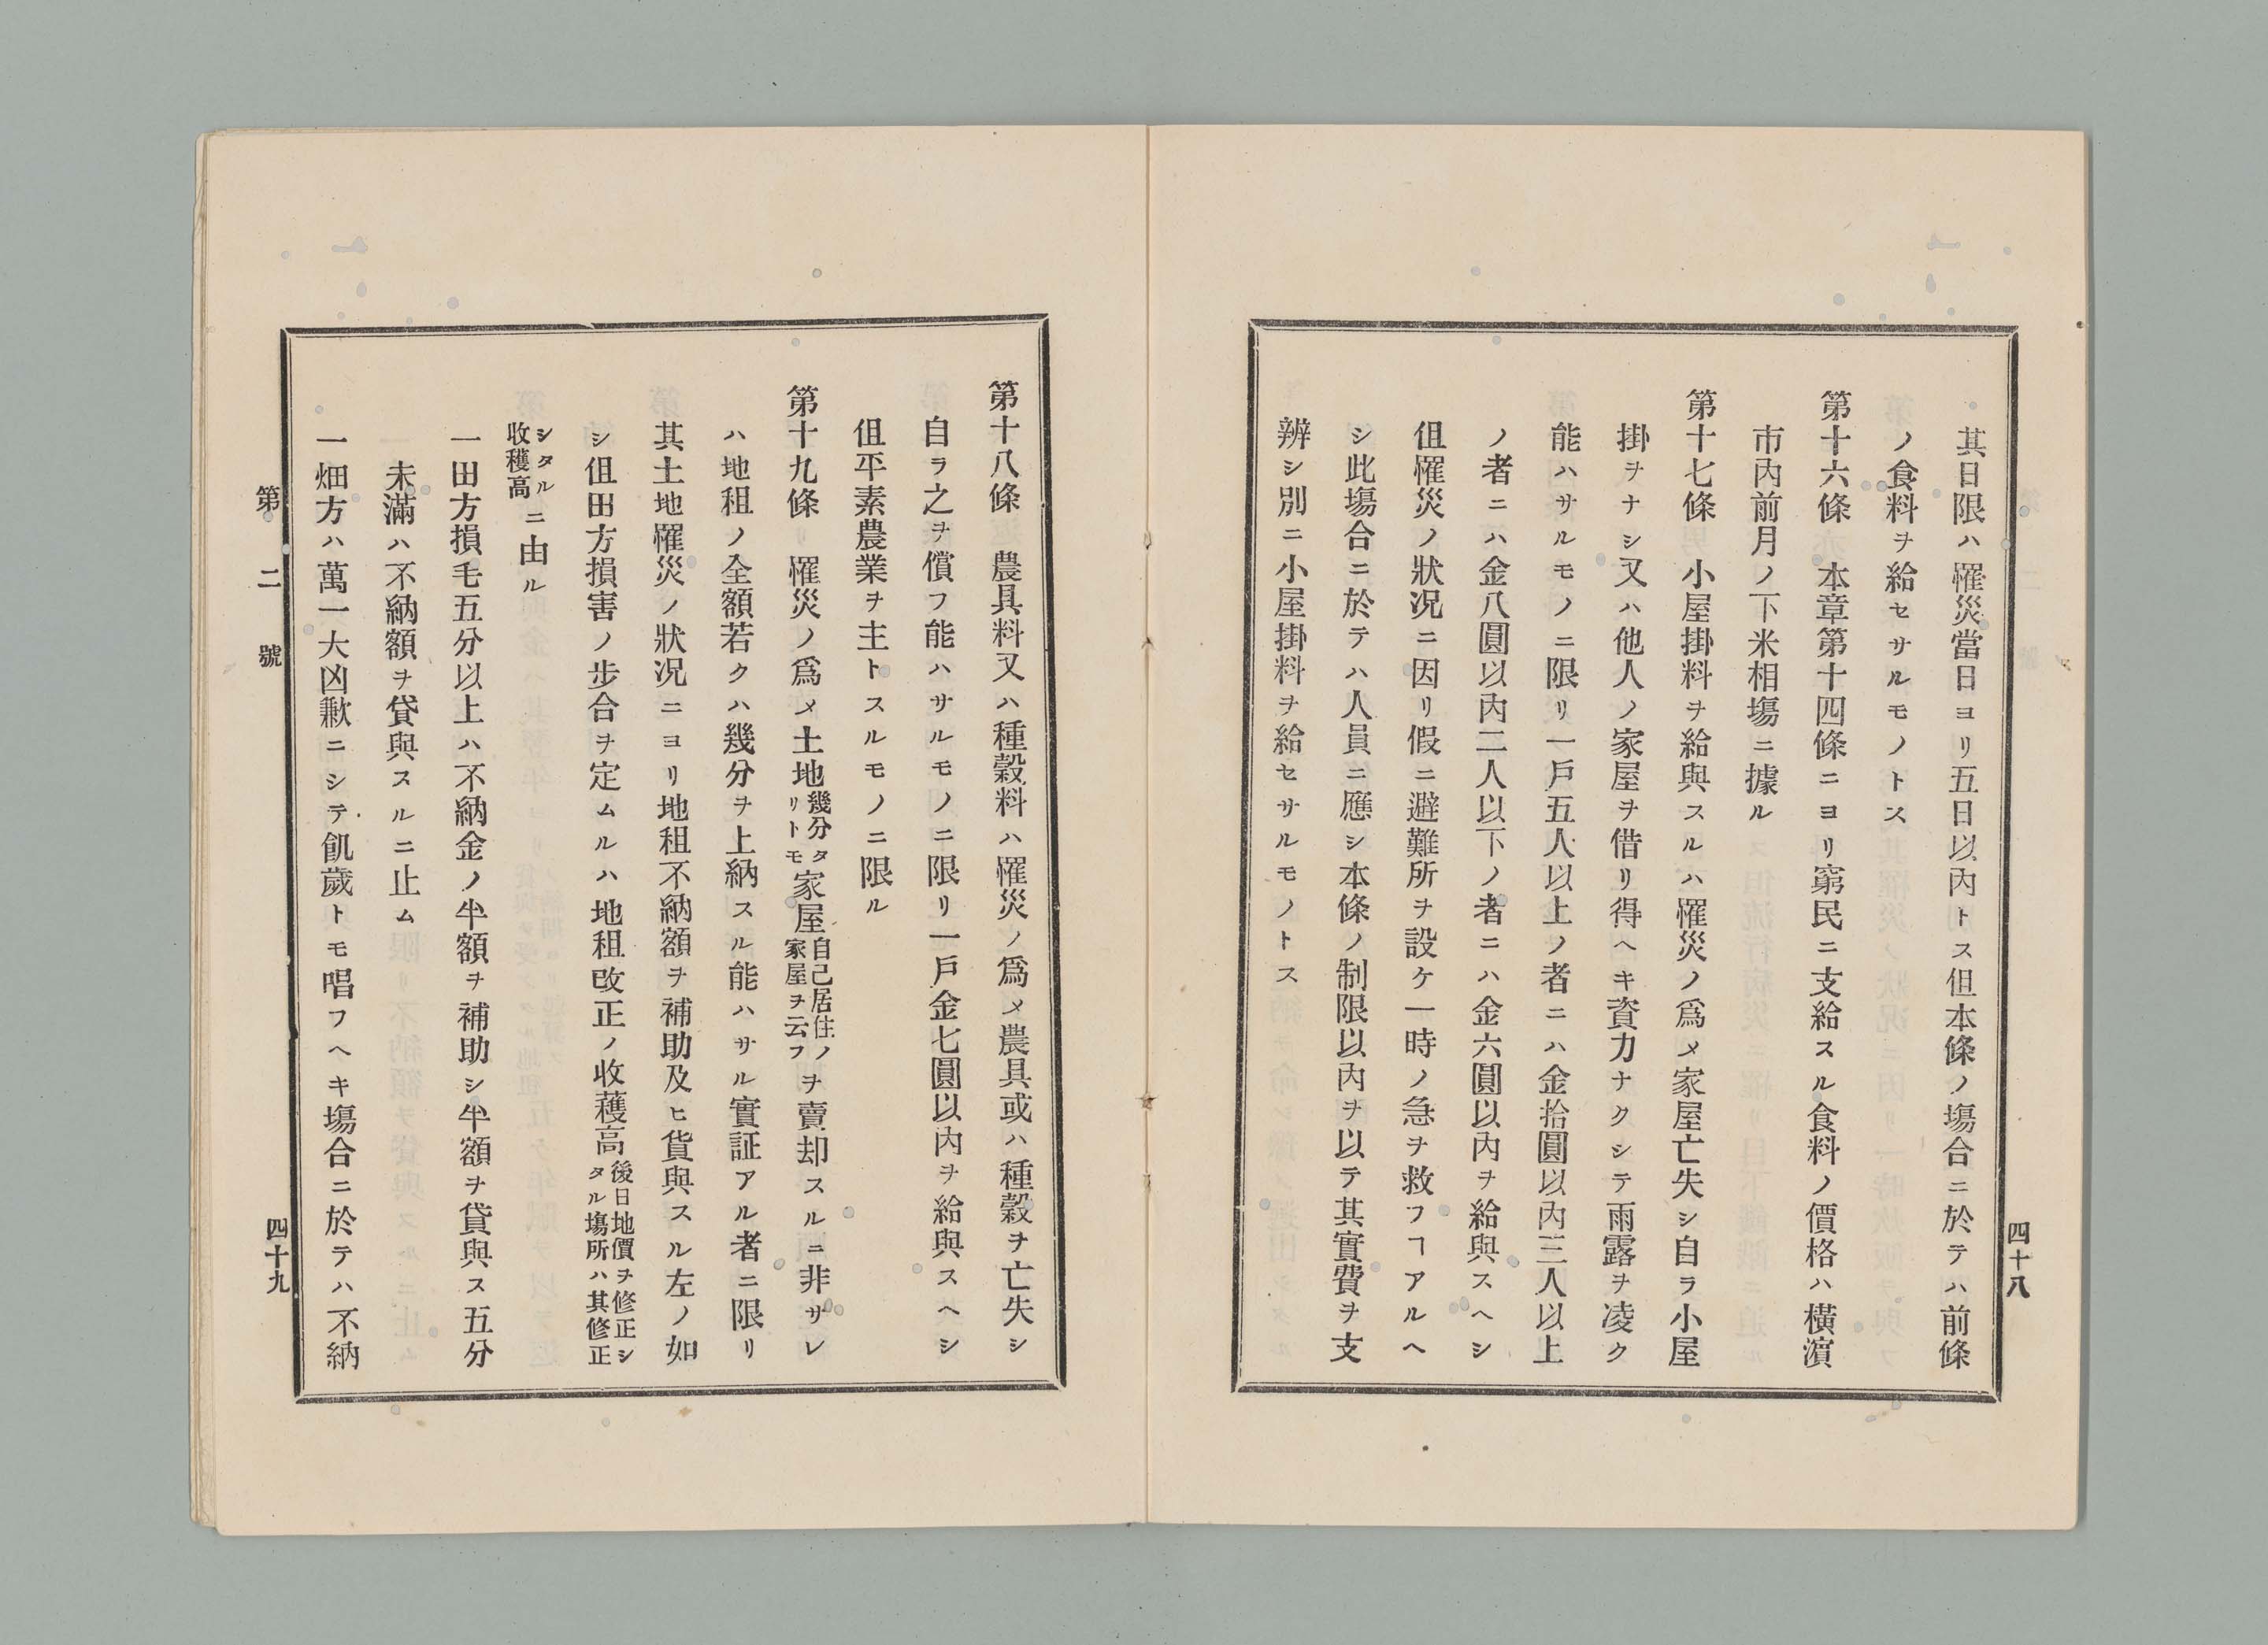 四十八
其日限ハ罹災當日ヨリ五日以內トス但本條ノ塲合ニ於テハ前條
ノ食料ヲ給セサルモノトス
第十六條　本章第十四條ニヨリ窮民ニ支給スル食料ノ價格ハ橫濱
市內前月ノ下米相塲ニ據ル
第十七條　小屋掛料ヲ給與スルハ罹災ノ爲メ家屋亡失シ自ラ小屋
掛ヲナシ又ハ他人ノ家屋ヲ借リ得ヘキ資力ナクシテ雨露ヲ凌ク
能ハサルモノニ限リ一戶五人以上ノ者ニハ金拾圓以內三人以上
ノ者ニハ金八圓以內二人以下ノ者ニハ金六圓以內ヲ給與スヘシ
伹罹災ノ狀况ニ因リ假ニ避難所ヲ設ケ一時ノ急ヲ救フヿアルヘ
シ此塲合ニ於テハ人員ニ應シ本條ノ制限以內ヲ以テ其實費ヲ支
辨シ別ニ小屋掛料ヲ給セサルモノトス
第十八條　農具料又ハ種穀料ハ罹災ノ爲メ農具或ハ種穀ヲ亡失シ
自ラ之ヲ償フ能ハサルモノニ限リ一戶金七圓以內ヲ給與スヘシ
伹平素農業ヲ主トスルモノニ限ル
第十九條　罹災ノ爲メ土地幾分タリトモ家屋自己居住ノ家屋ヲ云フヲ賣却スルニ非サレ
ハ地租ノ全額若クハ幾分ヲ上納スル能ハサル實証アル者ニ限リ
其土地罹災ノ狀况ニヨリ地租不納額ヲ補助及ヒ貨與スル左ノ如
シ伹田方損害ノ步合ヲ定ムルハ地租改正ノ收穫高後日地價ヲ修正シタル塲所ハ其修正
シタル收穫高ニ由ル
一田方損毛五分以上ハ不納金ノ半額ヲ補助シ半額ヲ貸與ス五分
未滿ハ不納額ヲ貸與スルニ止ム
一畑方ハ萬一大凶歉ニシテ飢歲トモ唱フヘキ塲合ニ於テハ不納
第二號
四十九